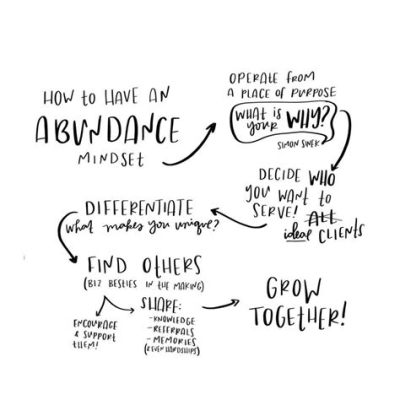 HOW to HAVE AN
ABUNDANCE
MINDSET
OPERATE from
A PLACE OF PURPOSE
WHAT is
your WHY?
SIMON SINEK
DECIDE WHO
YOU WANT to
SERVE! ALL
ideal CLIENTS
DIFFERENTIATE
what makes you unique?
FIND OTHERS
(BIZ BESTIES IN THE MAKING)
ENCOURAGE
& SUPPORT
THEM!
SHARE:
- KNOWLEDGE
- REFERRALS
- MEMORIES
(& EVEN HARDSHIPS)
GROW
TOGETHER!